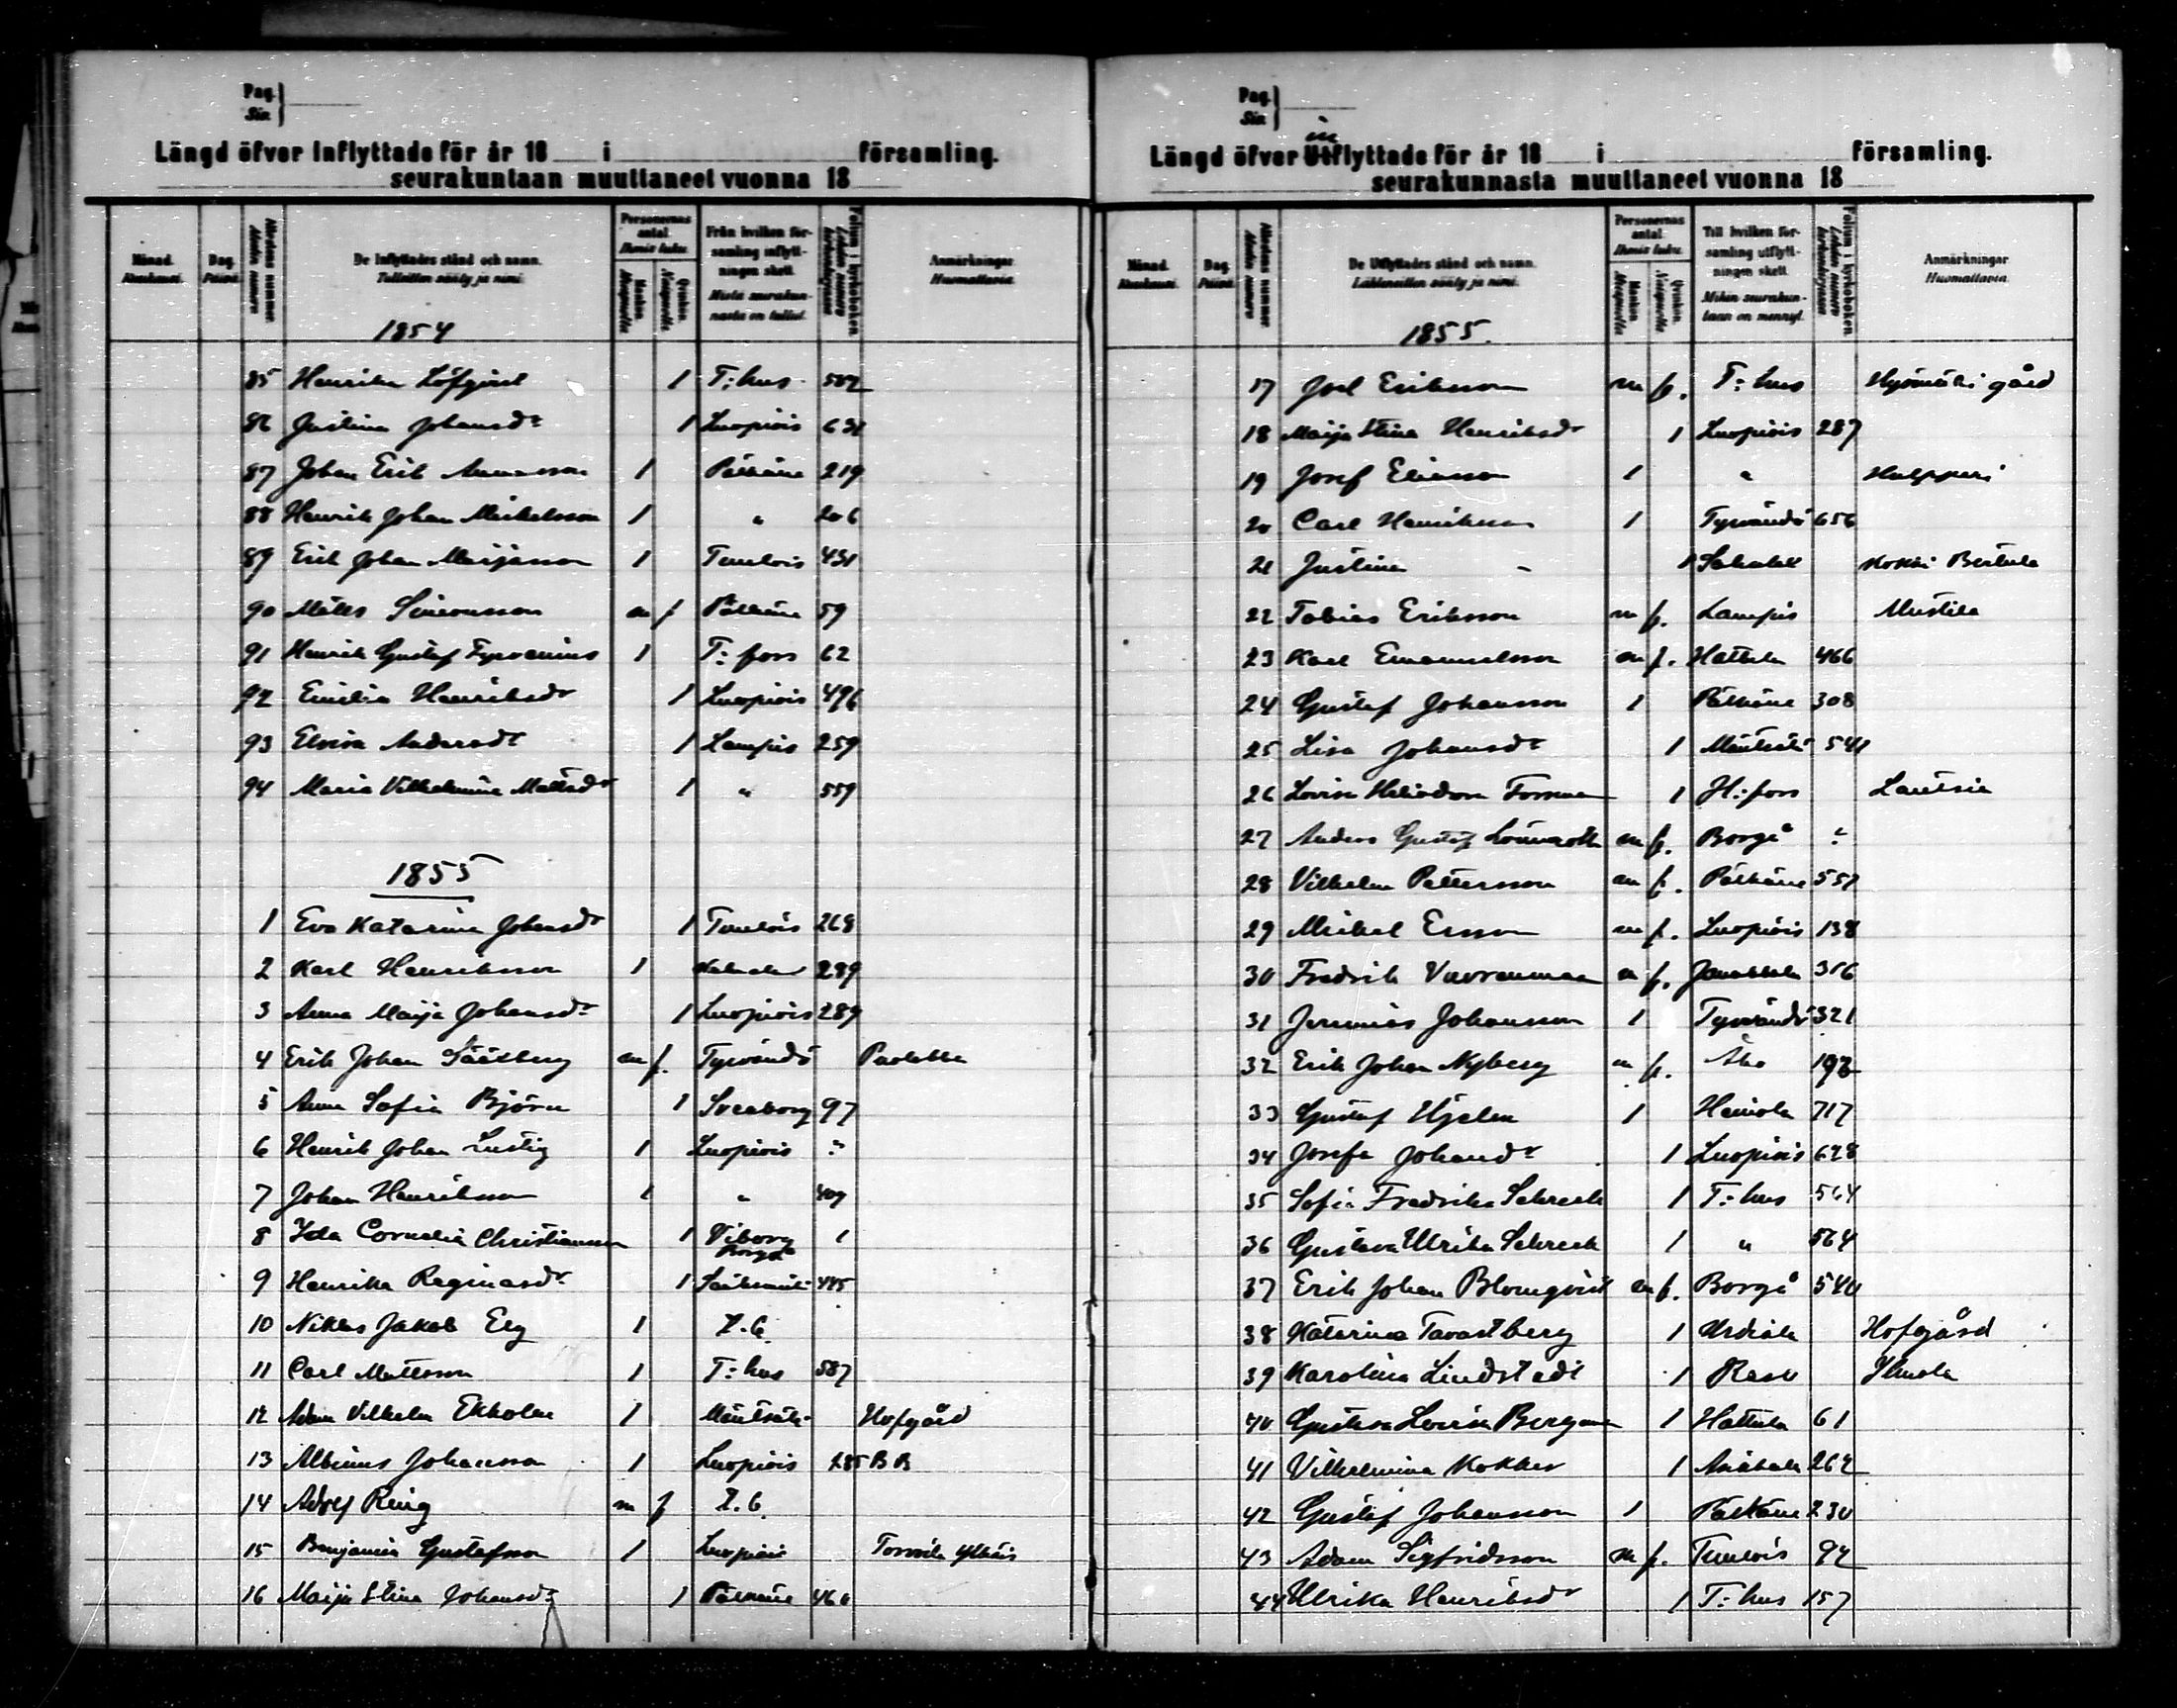 Pag.
Sia.
Längd öfver Inflyttade för år 18 i församling.
seurakuntaan muuttaneet vuonna 18
Månad. Kuukausi.
Dag. Päivä.
De Inflyttades stånd och namn.
Tulleitten sääty ja nimi.
Personernas antal.
Från hvilken församling inflyttningen skett.
Mistä seurakunnasta on tullut.
Anmärkningar
Huomattavia
1854
85 Henrika Löfqvist 1 T:hus 502
86 Justina Johansdr 1 Luopiois 631
87 Johan Erik Annasson 1 Pälkäne 219
88 Henrik Johan Mickelsson 1 " 206
89 Erik Johan Maijasson 1 Tuulois 431
90 Matts Simonsson m f Pälkäne 59
91 Henrik Gustaf Tyrvenius 1 T:fors 62
92 Emilia Henriksdr 1 Luopiois 496
93 Elvira Andersdr 1 Lampis 259
94 Maria Vilhelmina Mattsdr 1 " 559
1855
1 Eva Katarina Johansdr 1 Tuulois 268
2 Karl Henriksson 1 289
3 Anna Maija Johansdr 1 Luopiois 289
4 Erik Johan Sääsberg m f. Tyrvändö
5 Anna Sofia Björn 1 Sveaborg 97
6 Henrik Johan Lustig 1 Luopiois
7 Johan Henriksson 1 " 409
8 Ida Cornelia Christiansson 1 Viborg 1
9 Henrika Reginasdr 1 Sääksmäki 445
10 Niklas Jakob Elg 1
11 Carl Mattsson 1 T:hus 587
12 Adam Vilhelm Ekholm 1 Mäntsälä Hofgård
13 Albinus Johansson 1 Luopiois 285 BB
14 Adolf Ring m f
15 Benjamin Gustafsson 1 Luopiois
16 Maija Stina Johansdr 1 Pälkäne 460
Pag.
Sia.
in
Längd öfver Utflyttade för år 18 i församling.
seurakunnasta muuttaneet vuonna 18
Månad. Kuukausi.
Dag. Päivä.
De Utflyttades stånd och namn.
Lähteneitten sääty ja nimi.
Personernas antal.
Till hvilken församling utflyttningen skett.
Mihin seurakuntaan on mennyt.
Anmärkningar
Huomattavia
1855.
17 Joel Eriksson m f. T:hus gård
18 Maija Stina Henriksdr 1 Luopiois 287
19 Josef Eliasson 1 "
20 Carl Henriksson 1 Tyrvändö 656
21 Justina - 1 Sahalaks
22 Tobias Eriksson m f. Lampis Mustila
23 Karl Emanuelsson m f. Hattula 466
24 Gustaf Johansson 1 Pälkäne 308
25 Lisa Johansdr 1 Mäntsälä 541
26 Lovisa Heliodora Forsman 1 H:fors Lautsia
27 Anders Gustaf Lönnroth m f. Borgå
28 Vilhelm Pettersson m f. Pälkäne 551
29 Mickel Ersson m f. Luopiois 138
30 Fredrik Vuorenmaa m f. Janakkala 316
31 Jeremias Johansson 1 Tyrvändö 321
32 Erik Johan Nyberg m f. Åbo
33 Gustaf Hjelm 1 Heinola 717
34 Josefa Johansdr 1 Luopiois 628
35 Sofia Fredrika Schreck 1 T:hus 564
36 Gustava Ulrika Schreck 1 " 564
37 Erik Johan Blomqvist m f. Borgå 540
38 Katarina Tavastberg 1 Urdiala Hofgård
39 Karolina Lindstedt 1
40 Gustava Lovisa Bergman 1 Hattula 61
41 Vilhelmina Kokker 1 Asikkala 262
42 Gustaf Johansson 1 Pälkäne 230
43 Adam Sigfridsson m f. Tuulois 92
44 Ulrika Henriksdr 1 T:hus 157